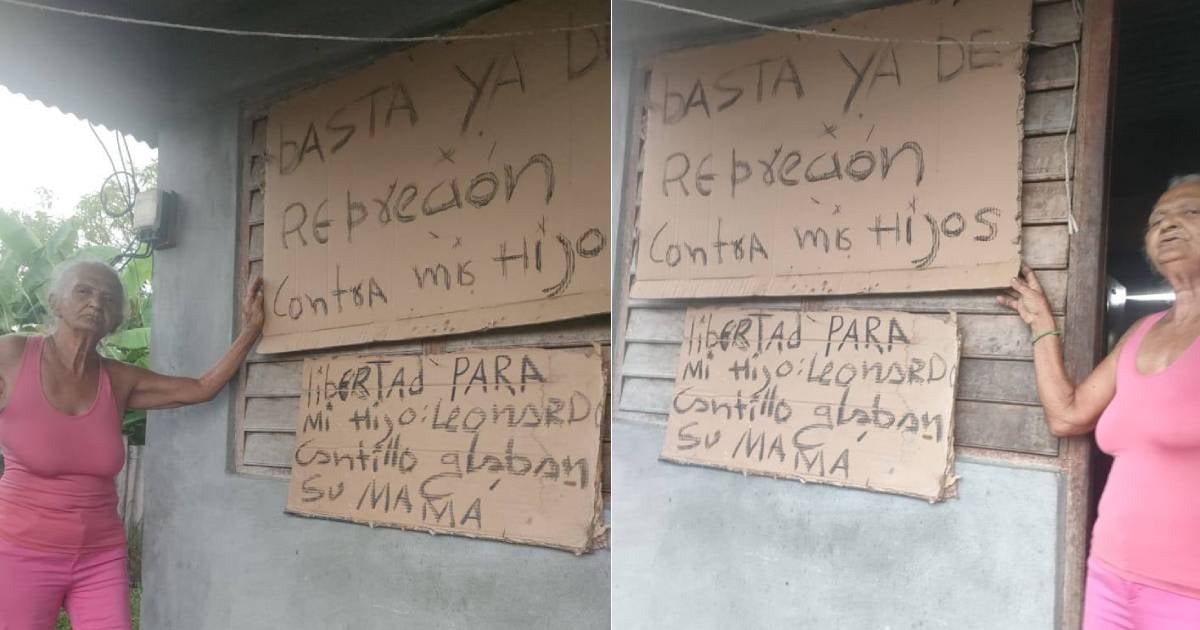 bASTA YA DE
REpreción
contra mis Hijos
libERTAd PARA
Mi Hijo: LEONARDO
Cantillo glabán
SU MAMÁ
bASTA YA DE
REpreción
contra mis Hijos
libERTAd PARA
Mi Hijo: LEONARDO
Cantillo glabán
SU MAMÁ